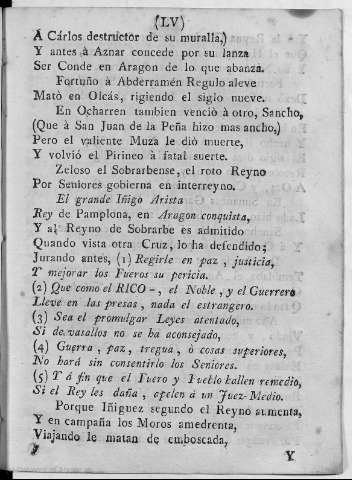 (LV)
A Cárlos destructor de su muralla,)
Y antes à Aznar concede por su lanza
Ser Conde en Aragon de lo que abanza.
Fortuño à Abderramén Regulo aleve
Matò en Olcás, rigiendo el siglo nueve.
En Ocharren tambien venciò à otro, Sancho,
(Que à San Juan de la Peña hizo mas ancho,)
Pero el valiente Muza le diò muerte,
Y volviò el Pirineo à fatal suerte.
Zeloso el Sobrarbense, el roto Reyno
Por Seniores gobierna en interreyno.
El grande Iñigò Arista
Rey de Pamplona, en Aragon conquista,
Y al Reyno de Sobrarbe es admitido
Quando vista otra Cruz, lo ha defendido;
Jurando antes, (1) Regirle en paz, justicia,
Y mejorar los Fueros su pericia.
(2) Que como el RICO-, el Noble, y el Guerrero
Lleve en las presas, nada el estrangero.
(3) Sea el promulgar Leyes atentado,
Si de vasallos no se ha aconsejado,
(4) Guerra, paz, tregua, ò cosas superiores,
No hará sin consentirlo los Seniores.
(5) Y á fin que el Fuero y Pueblo hallen remedio,
Si el Rey les daña, apelen á un Juez-Medio.
Porque Iñiguez segundo el Reyno aumenta,
Y en campaña los Moros amedrenta,
Viajando le matan de emboscada,
Y